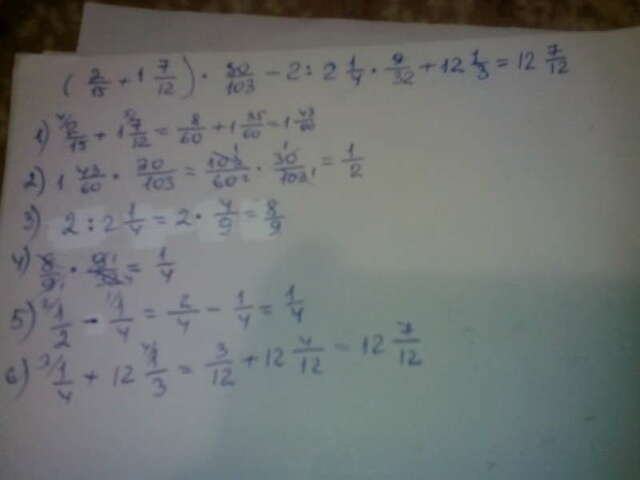 ( 2/15 + 1 7/12 ) · 30/103 - 2 : 2 1/4 · 9/32 + 12 1/3 = 12 7/12
1) 2/15 + 1 7/12 = 8/60 + 1 35/60 = 1 43/60
2) 1 43/60 · 30/103 = 103/60 · 30/103 = 1/2
3) 2 : 2 1/4 = 2 · 4/9 = 8/9
4) 8/9 · 9/32 = 1/4
5) 1/2 - 1/4 = 2/4 - 1/4 = 1/4
6) 1/4 + 12 1/3 = 3/12 + 12 4/12 = 12 7/12